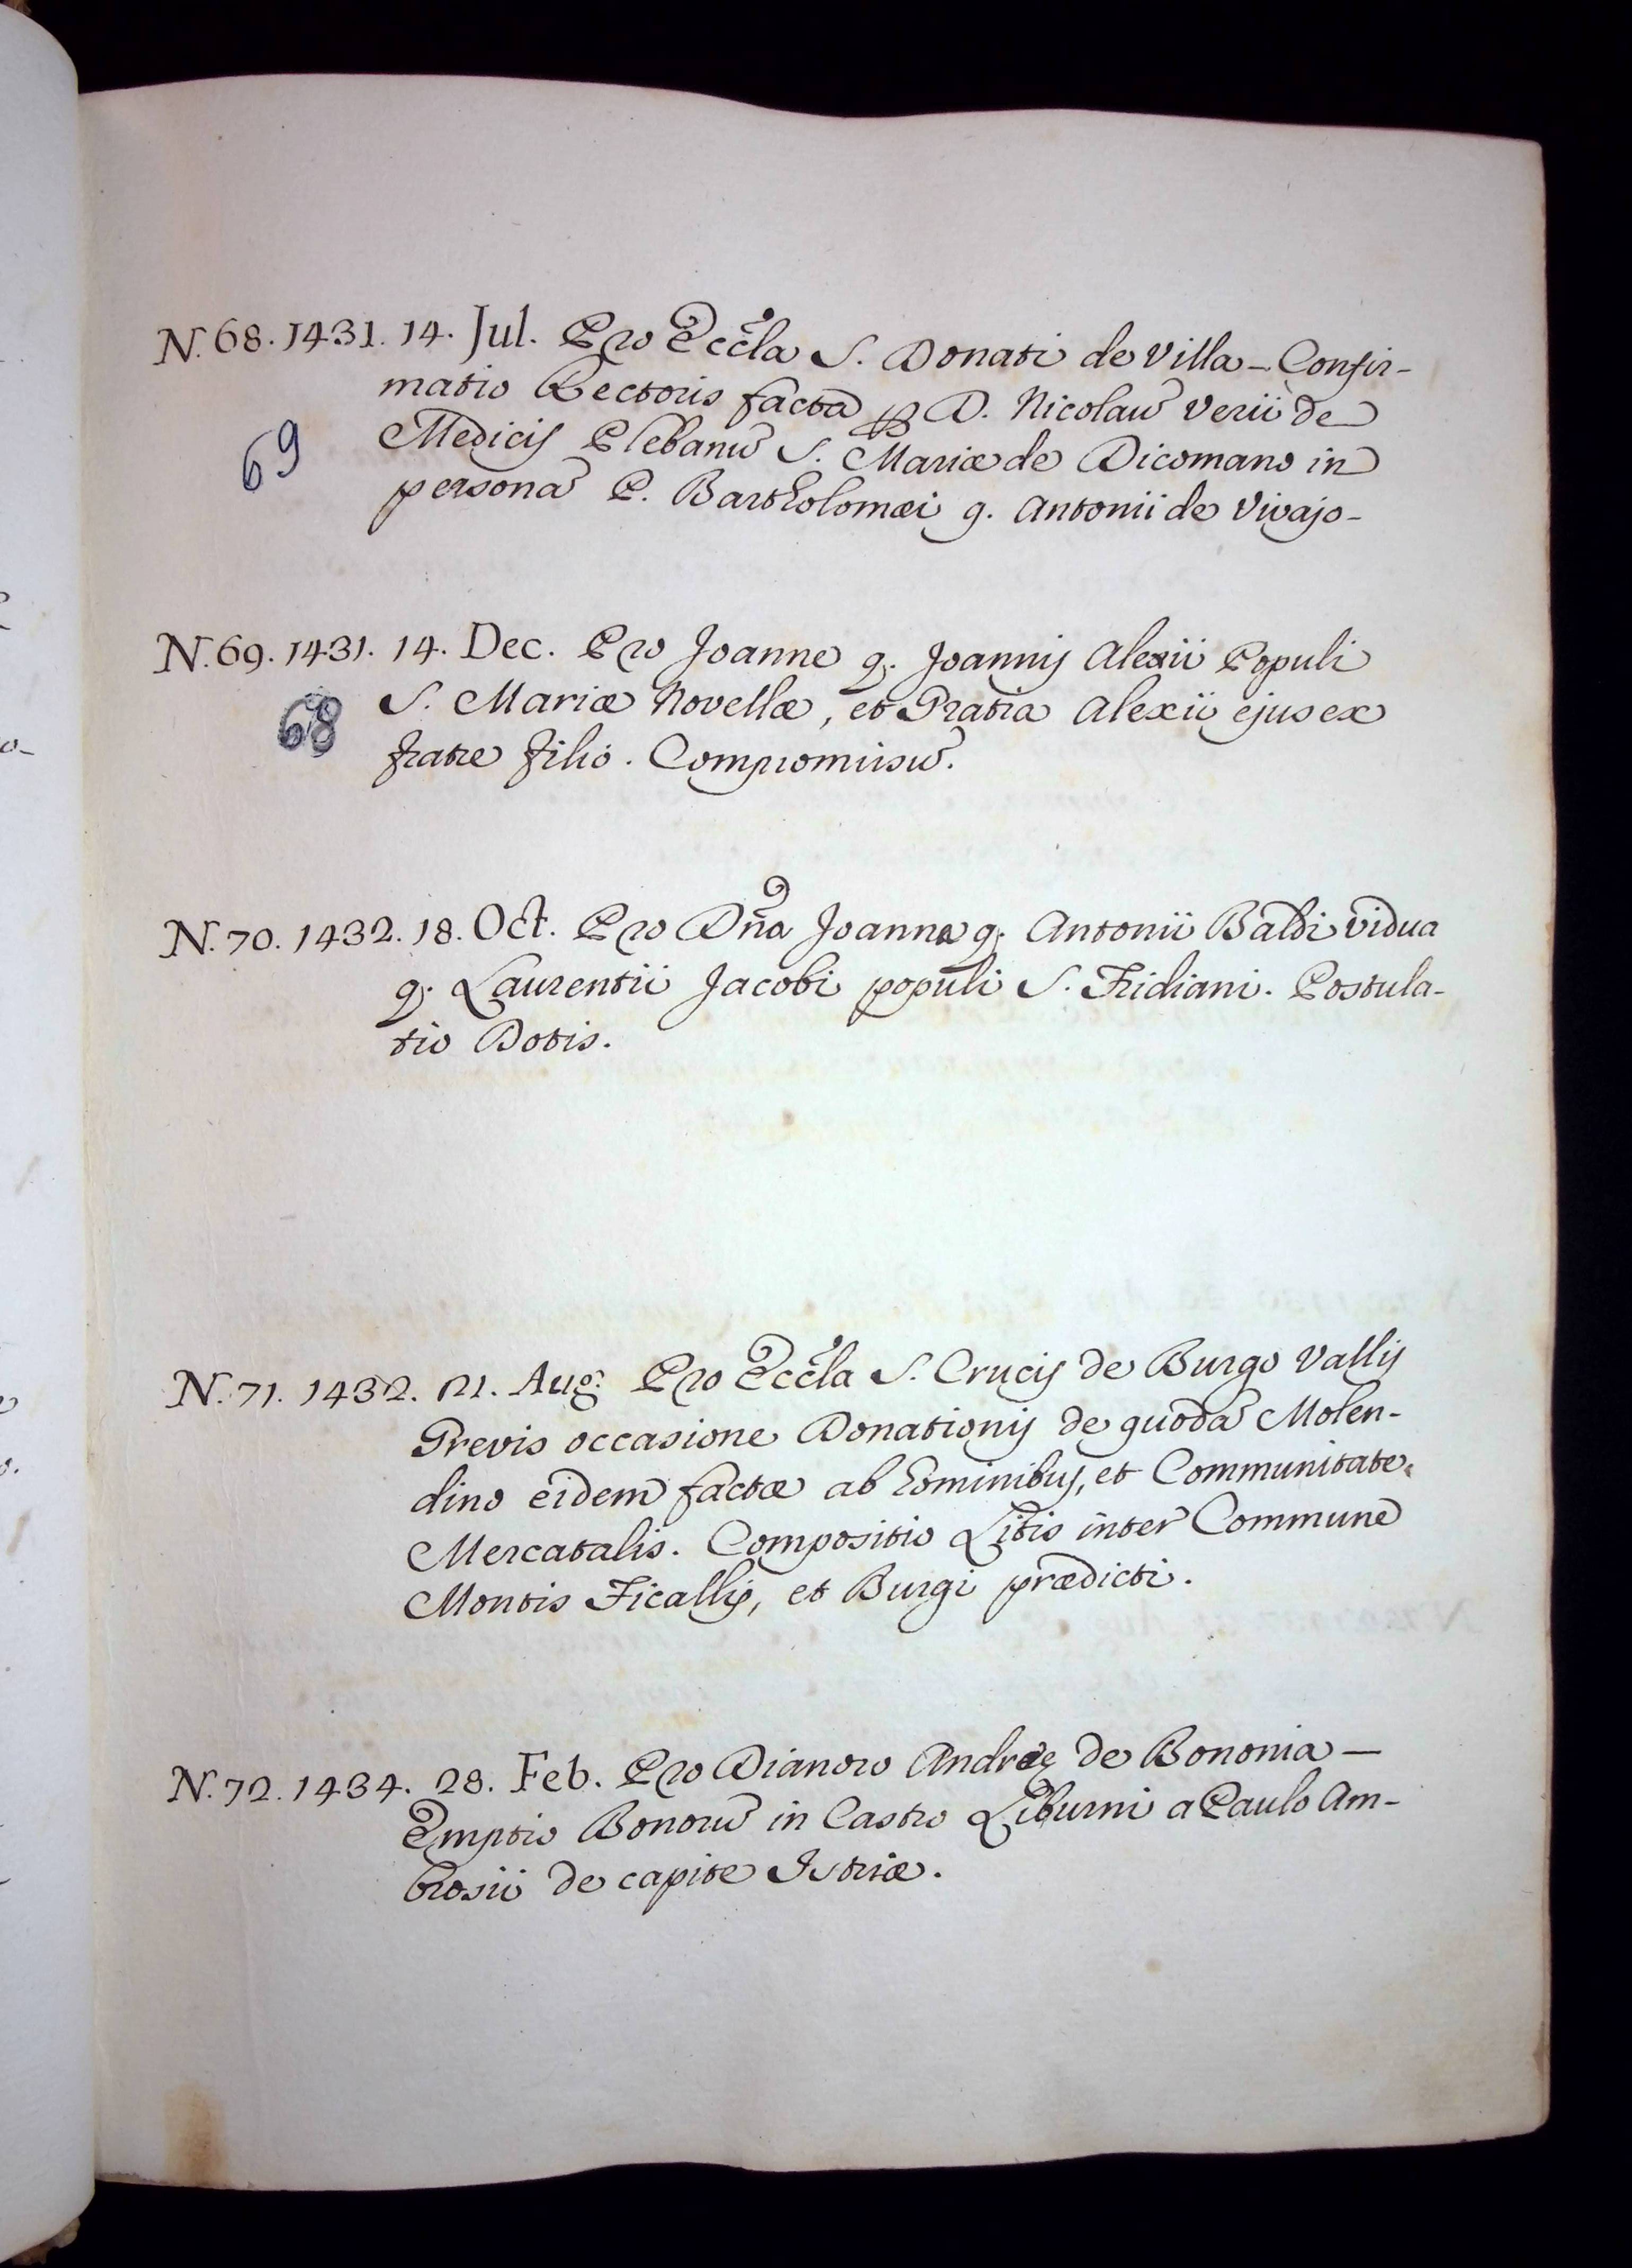 N. 68. 1431. 14. Jul. Pro Eccl̃a S. Donati de Villa - Confir-
matio Rectoris facta ꝑ D. Nicolaũ Verii de
Medicis Plebanũ S. Mariæ de Dicomano in
personã P. Bartholomæi q. Antonii de Vivajo-
69
N. 69. 1431. 14. Dec. Pro Joanne q. Joannis Alexii Populi
S. Mariæ Novellæ, et Gratia Alexii ejus ex
68
fratre filio. Compromissũ.
N. 70. 1432. 18. Oct. Pro Dña Joanna q. Antonii Baldi vidua
q. Laurentii Jacobi populi S. Fridiani. Postula-
tio Dotis.
N. 71. 1432. 21. Aug. Pro Eccl̃a S. Crucis de Burgo Vallis
Grevis occasione Donationis de quodã Molen-
dino eidem factæ ab hominibus, et Communitate
Mercatalis. Compositio Litis inter Commune
Montis Ficallis, et Burgi prædicti.
N. 72. 1434. 28. Feb. Pro Dianoro Andreæ de Bononia —
Emptio Bonorũ in Castro Liburni a Paulo Am-
brosii de capite Istriæ.